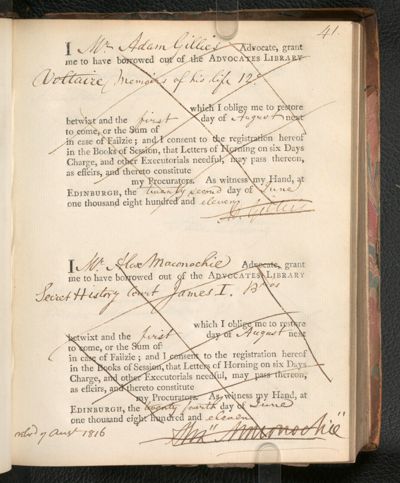 41.
I Mr. Adam Gillies Advocate, grant
me to have borrowed out of the ADVOCATES LIBRARY
Voltaire, Memoirs of his life 12o.
which I oblige me to restore
betwixt and the first day of August next
to come, or the Sum of
in case of Failzie; and I consent to the registration hereof
in the Books of Session, that Letters of Horning on six Days
Charge, and other Executorials needful, may pass thereon,
as effeirs, and thereto constitute
my Procurators. As witness my Hand, at
EDINBURGH, the twenty second day of June
one thousand eight hundred and eleven
A. Gillies
I Mr. Alex Maconochie Advocate, grant
me to have borrowed out of the ADVOCATES LIBRARY
Secret History Court James I.
which I oblige me to restore
betwixt and the first day of August next
to come, or the Sum of
in case of Failzie; and I consent to the registration hereof
in the Books of Session, that Letters of Horning on six Days
Charge, and other Executorials needful, may pass thereon,
as effeirs, and thereto constitute
my Procurators. As witness my Hand, at
EDINBURGH, the twenty fourth day of June
one thousand eight hundred and eleven
Alexr Maconochie
9 Augt 1816